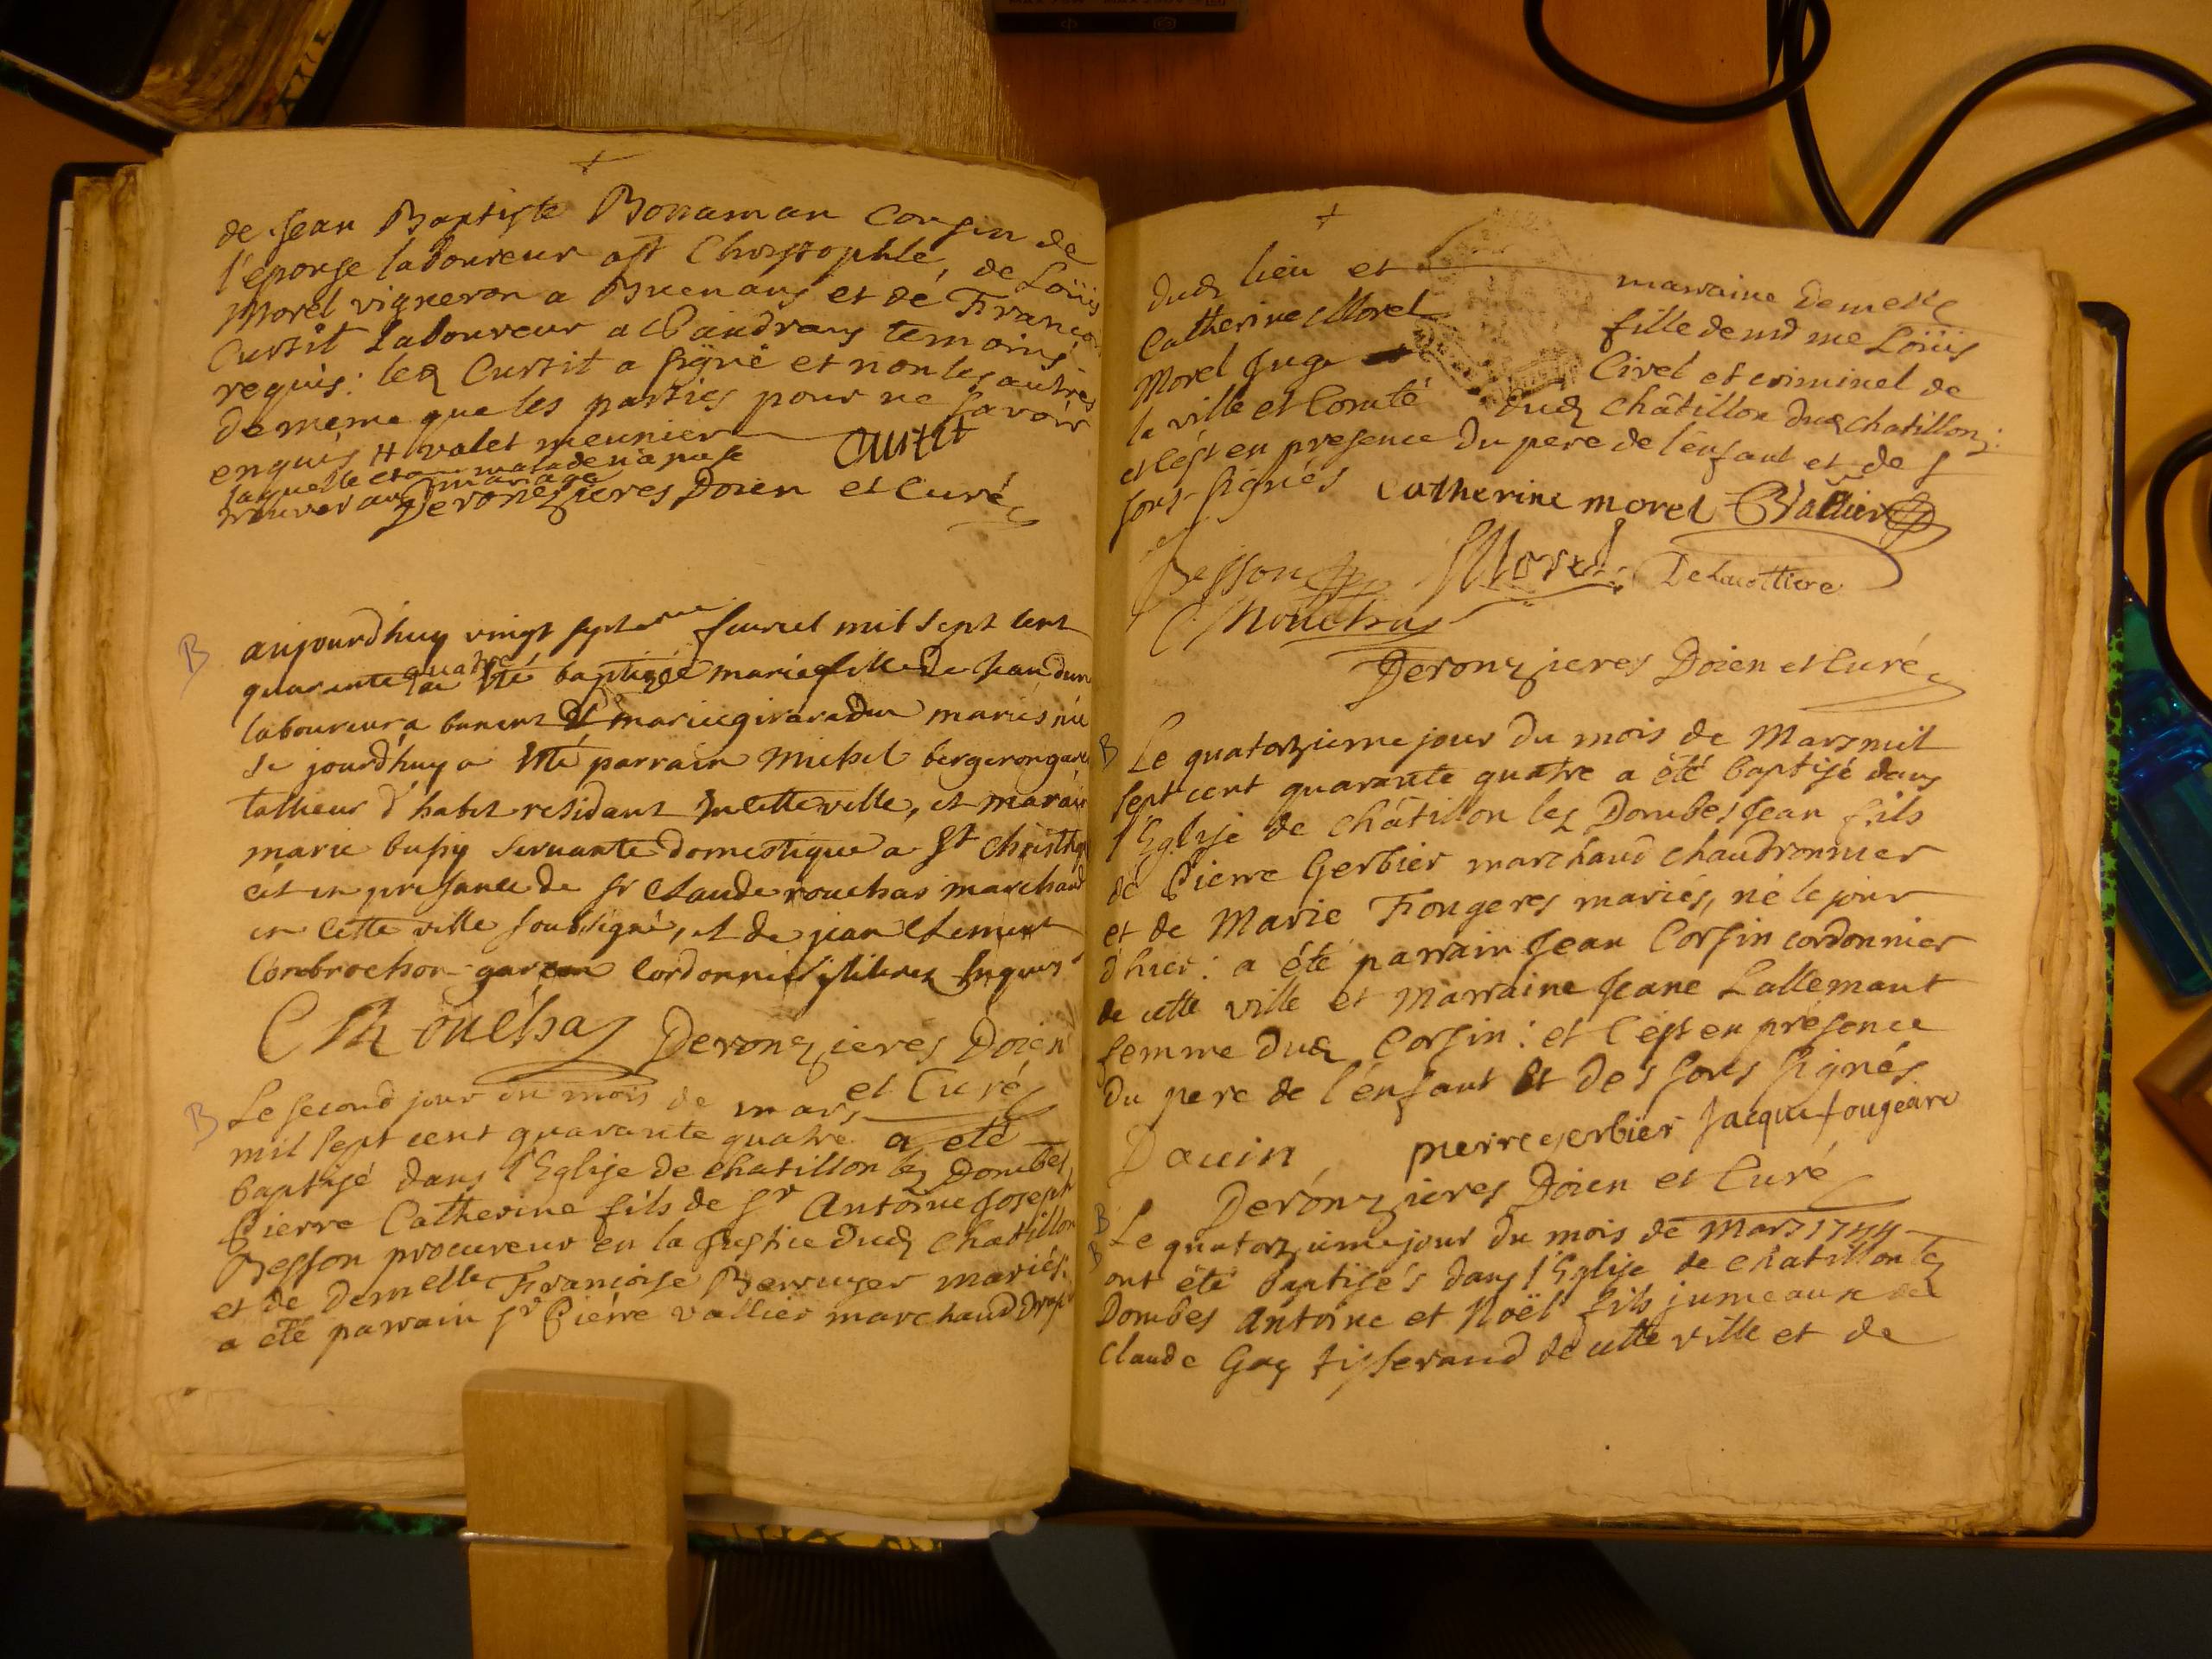 de Jean Baptiste Bonaman Cousin de
l'epouse laboureur a St Christophle, de Loüis
Morel vigneron a Buenans et de François
Curtit Laboureur a Vandrans temoins
requis: led Curtit a signé et non les autres
de meme que les parties pour ne savoir
enquis # valet meunier Curtit
laquelle etant malade n'a pu se
trouver au mariage
Deronzieres Doien et Curé
B aujourdhuy vingt sept feuriel mil sept cent
quarante quatre a été baptizée marie fille de Jean dun
laboureur a et marie giraradun mariés née
ce jourdhuy a été parrain michel bergeron garçon
tallieur d'habit residant en cette ville, et maraine
marie bussy servante domestique a St Christhop
cet en presance de sr Claude rouchas marchand
en cette ville soubsigné, et de jean Clement
Conbrochon garcon cordonnier illiteres enquis
C Rouchas Deronzieres Doien
et Curé
B Le second jour du mois de mars
mil sept cent quarante quatre a eté
baptisé dans l'Eglise de chatillon lez Dombes
Pierre Catherine fils de Sr Antoine Joseph
Besson procureur en la Justice dud Chatillon
et de Demelle Françoise Berruyer mariés:
a eté parrain sr Pierre vallier marchand drapier
dud lieu et marraine Demelle
Catherine Morel fille de md me Loüis
Morel Juge Civel et criminel de
la ville et Comté dud Châtillon dud chatillon:
et c'est en presence du pere de l'enfant et de s
sous-signés Catherine morel P Vallier
Besson Morel Delacottiere
C Rouchas
Deronzieres Doien et Curé
B Le quatorzieme jour du mois de Mars mil
sept cent quarante quatre a été baptisé dans
l'Eglise de Châtillon lez Dombes Jean fils
de Pierre Gerbier marchand chaudronnier
et de Marie Fougeres mariés, né le jour
d'hier: a été parrain Jean Corsin cordonnier
de cette ville et Marraine Jeane Lallemant
femme dud Corsin: et c'est en présence
du pere de l'enfant et des sous signés
Dauin pierre gerbier Jacque fougeare
Deronzieres Doien et Curé
B Le quatorzieme jour du mois de Mars 1744
B ont été baptisés dans l'Eglise de chatillon lez
Dombes Antoine et Noël fils jumeaux de
Claude Guy tisserand de cette ville et de